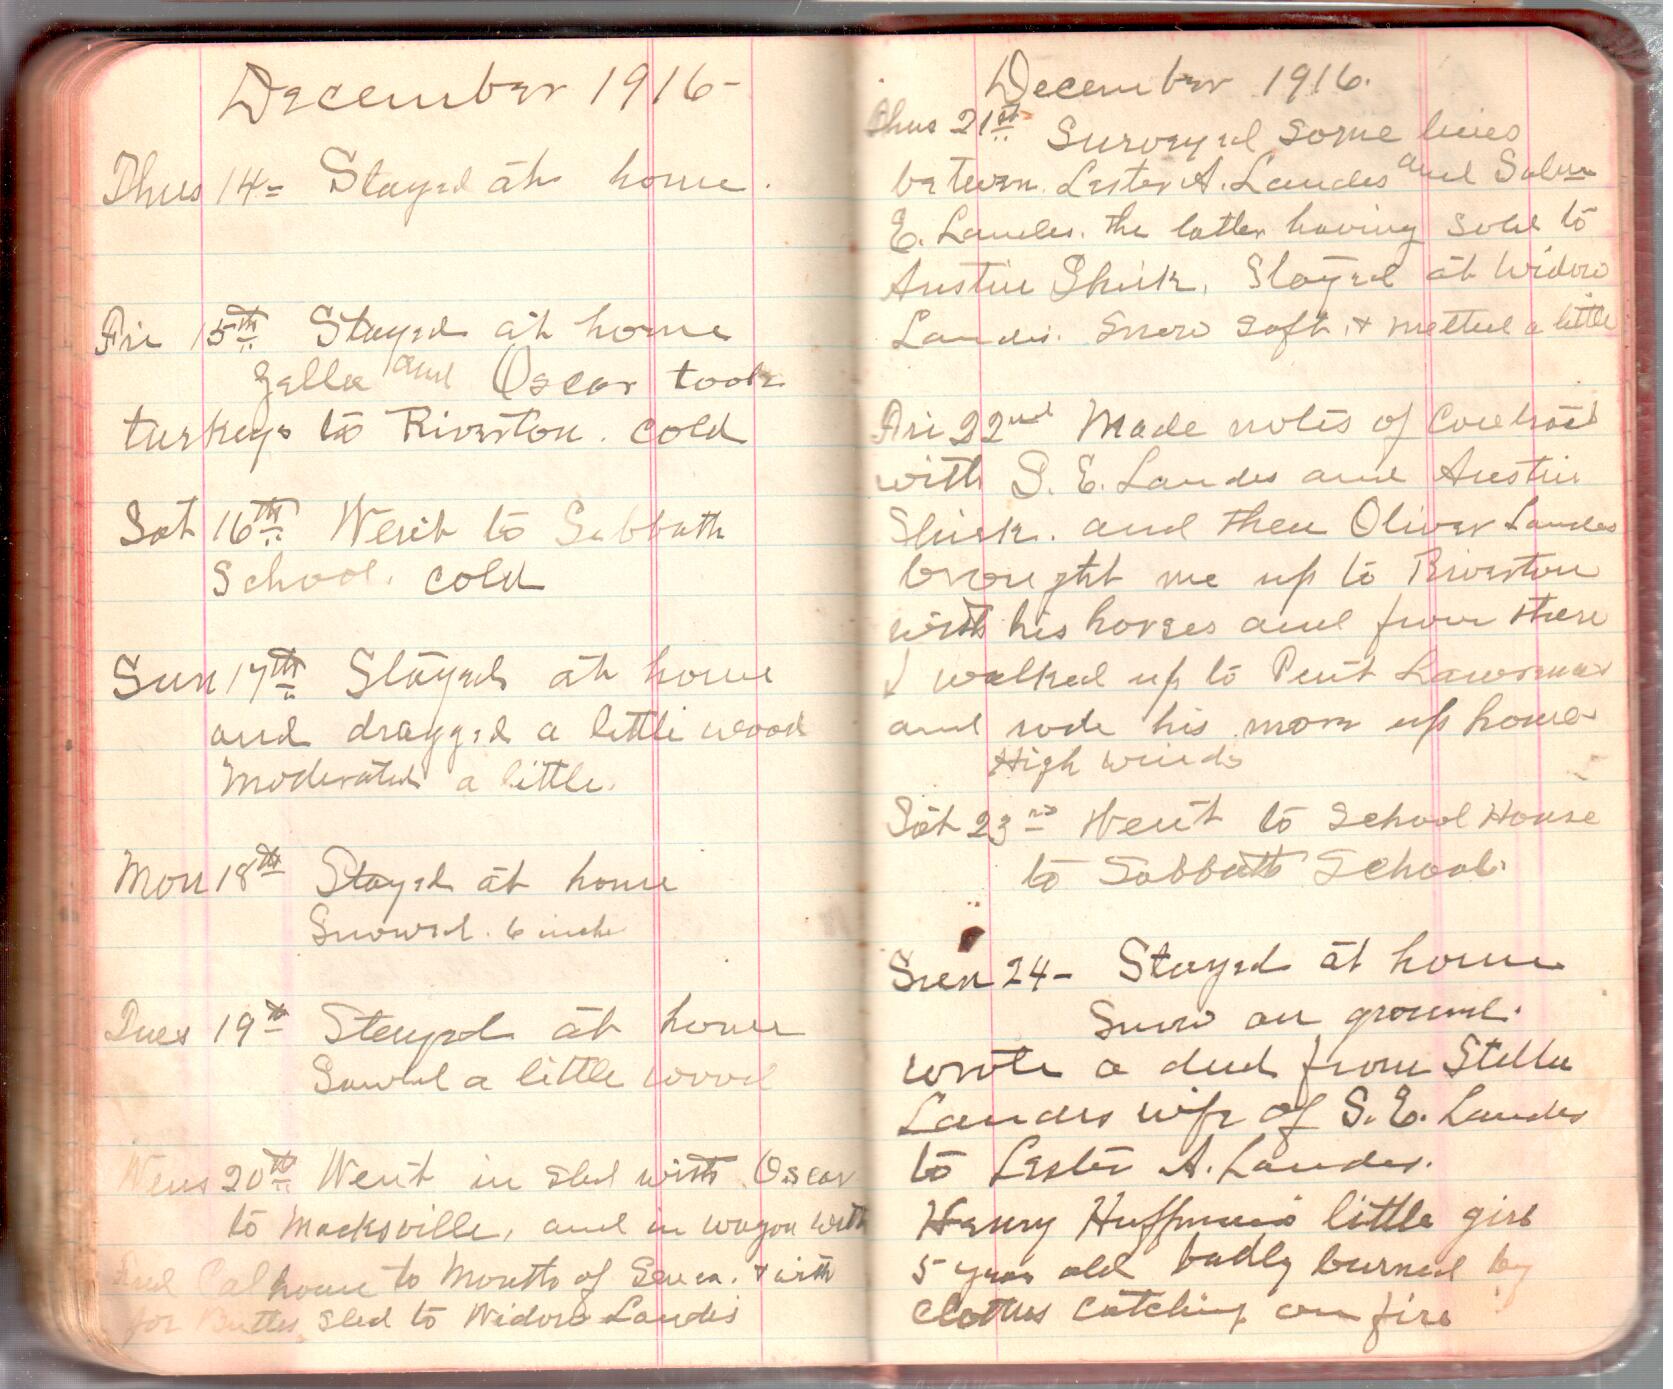 December 1916-
Thus 14- Stayed at home.
Fri 15th Stayed at home
Zella and Oscar took
turkeys to Riverton. cold
Sat 16th Went to Sabbath
School. cold
Sun 17th Stayed at home
and dragged a little wood
Moderated a little.
Mon 18th Stayed at home
Snowed. 6 inche
Tues 19th Stayed at home
Sawed a little wood
Wens 20th Went in sled with Oscar
to Macksville, and in wagon with
Calhoun to Mouth of Seneca. & with
sled to Widow Landis
December 1916.
Thus 21st Surveyed some lines
between Lester A. Landes and
E. Landes. the latter having sold to
Austin Shirk. Stayed at Widow
Landis. Snow soft, & melted a little
Fri 22nd Made notes of Contract
with S. E. Landes and Austin
Shirk. and then Oliver Landes
brought me up to Riverton
with his horses and from there
I walked up to
and rode his up home
High winds
Sat 23rd Went to School House
to Sabbath School.
Sun 24- Stayed at home
Snow on ground.
wrote a deed from Stella
Landes wife of S. E. Landes
to Lester A. Landes.
Henry Huffman's little girl
5 years old badly burned by
clothes catching on fire